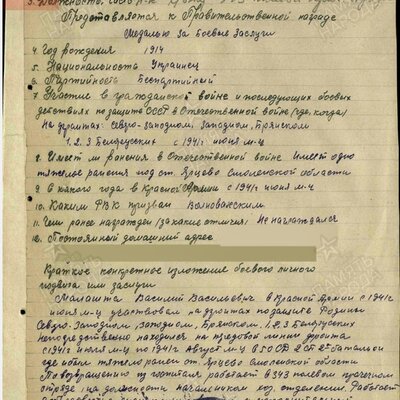 3. Должность, часть
Представляется к Правительственной награде
Медалью За боевые заслуги
4. Год рождения 1914
5. Национальность Украинец
6. Партийность Беспартийный
7. Участие в гражданской войне и последующих боевых
действиях по защите СССР в Отечественной войне (где, когда)
На фронтах: Северо-западном, Западном, Брянском
1. 2. 3 Белорусских с 1941 г июня м-ц
8. Имеет ли ранения в Отечественной войне Имеет одно
тяжелое ранение под ст. Ярцево Смоленской области
9. С какого года в Красной Армии с 1941 г июня м-ц
10. Каким РВК призван Волновахским
11. Чем ранее награжден (за какие отличия) Не награждался
12. Постоянный домашний адрес
Краткое конкретное изложение боевого личного
подвига или заслуги
Малашта Василий Васильевич в Красной Армии с 1941 г
июня м-ц участвовал на фронтах по защите Родины
Северо-Западном, Западном, Брянском, 1. 2. 3 Белорусских
непосредственно находился на передовой линии фронта
с 1941 г июня м-ц по 1941 г Август м-ц в 50 СД 2 СП 2 батальон
где и был тяжело ранен ст. Ярцево Смоленской области
По возвращению из госпиталя работает в 343 полевом
на должности начальником хоз. отделения. Работает